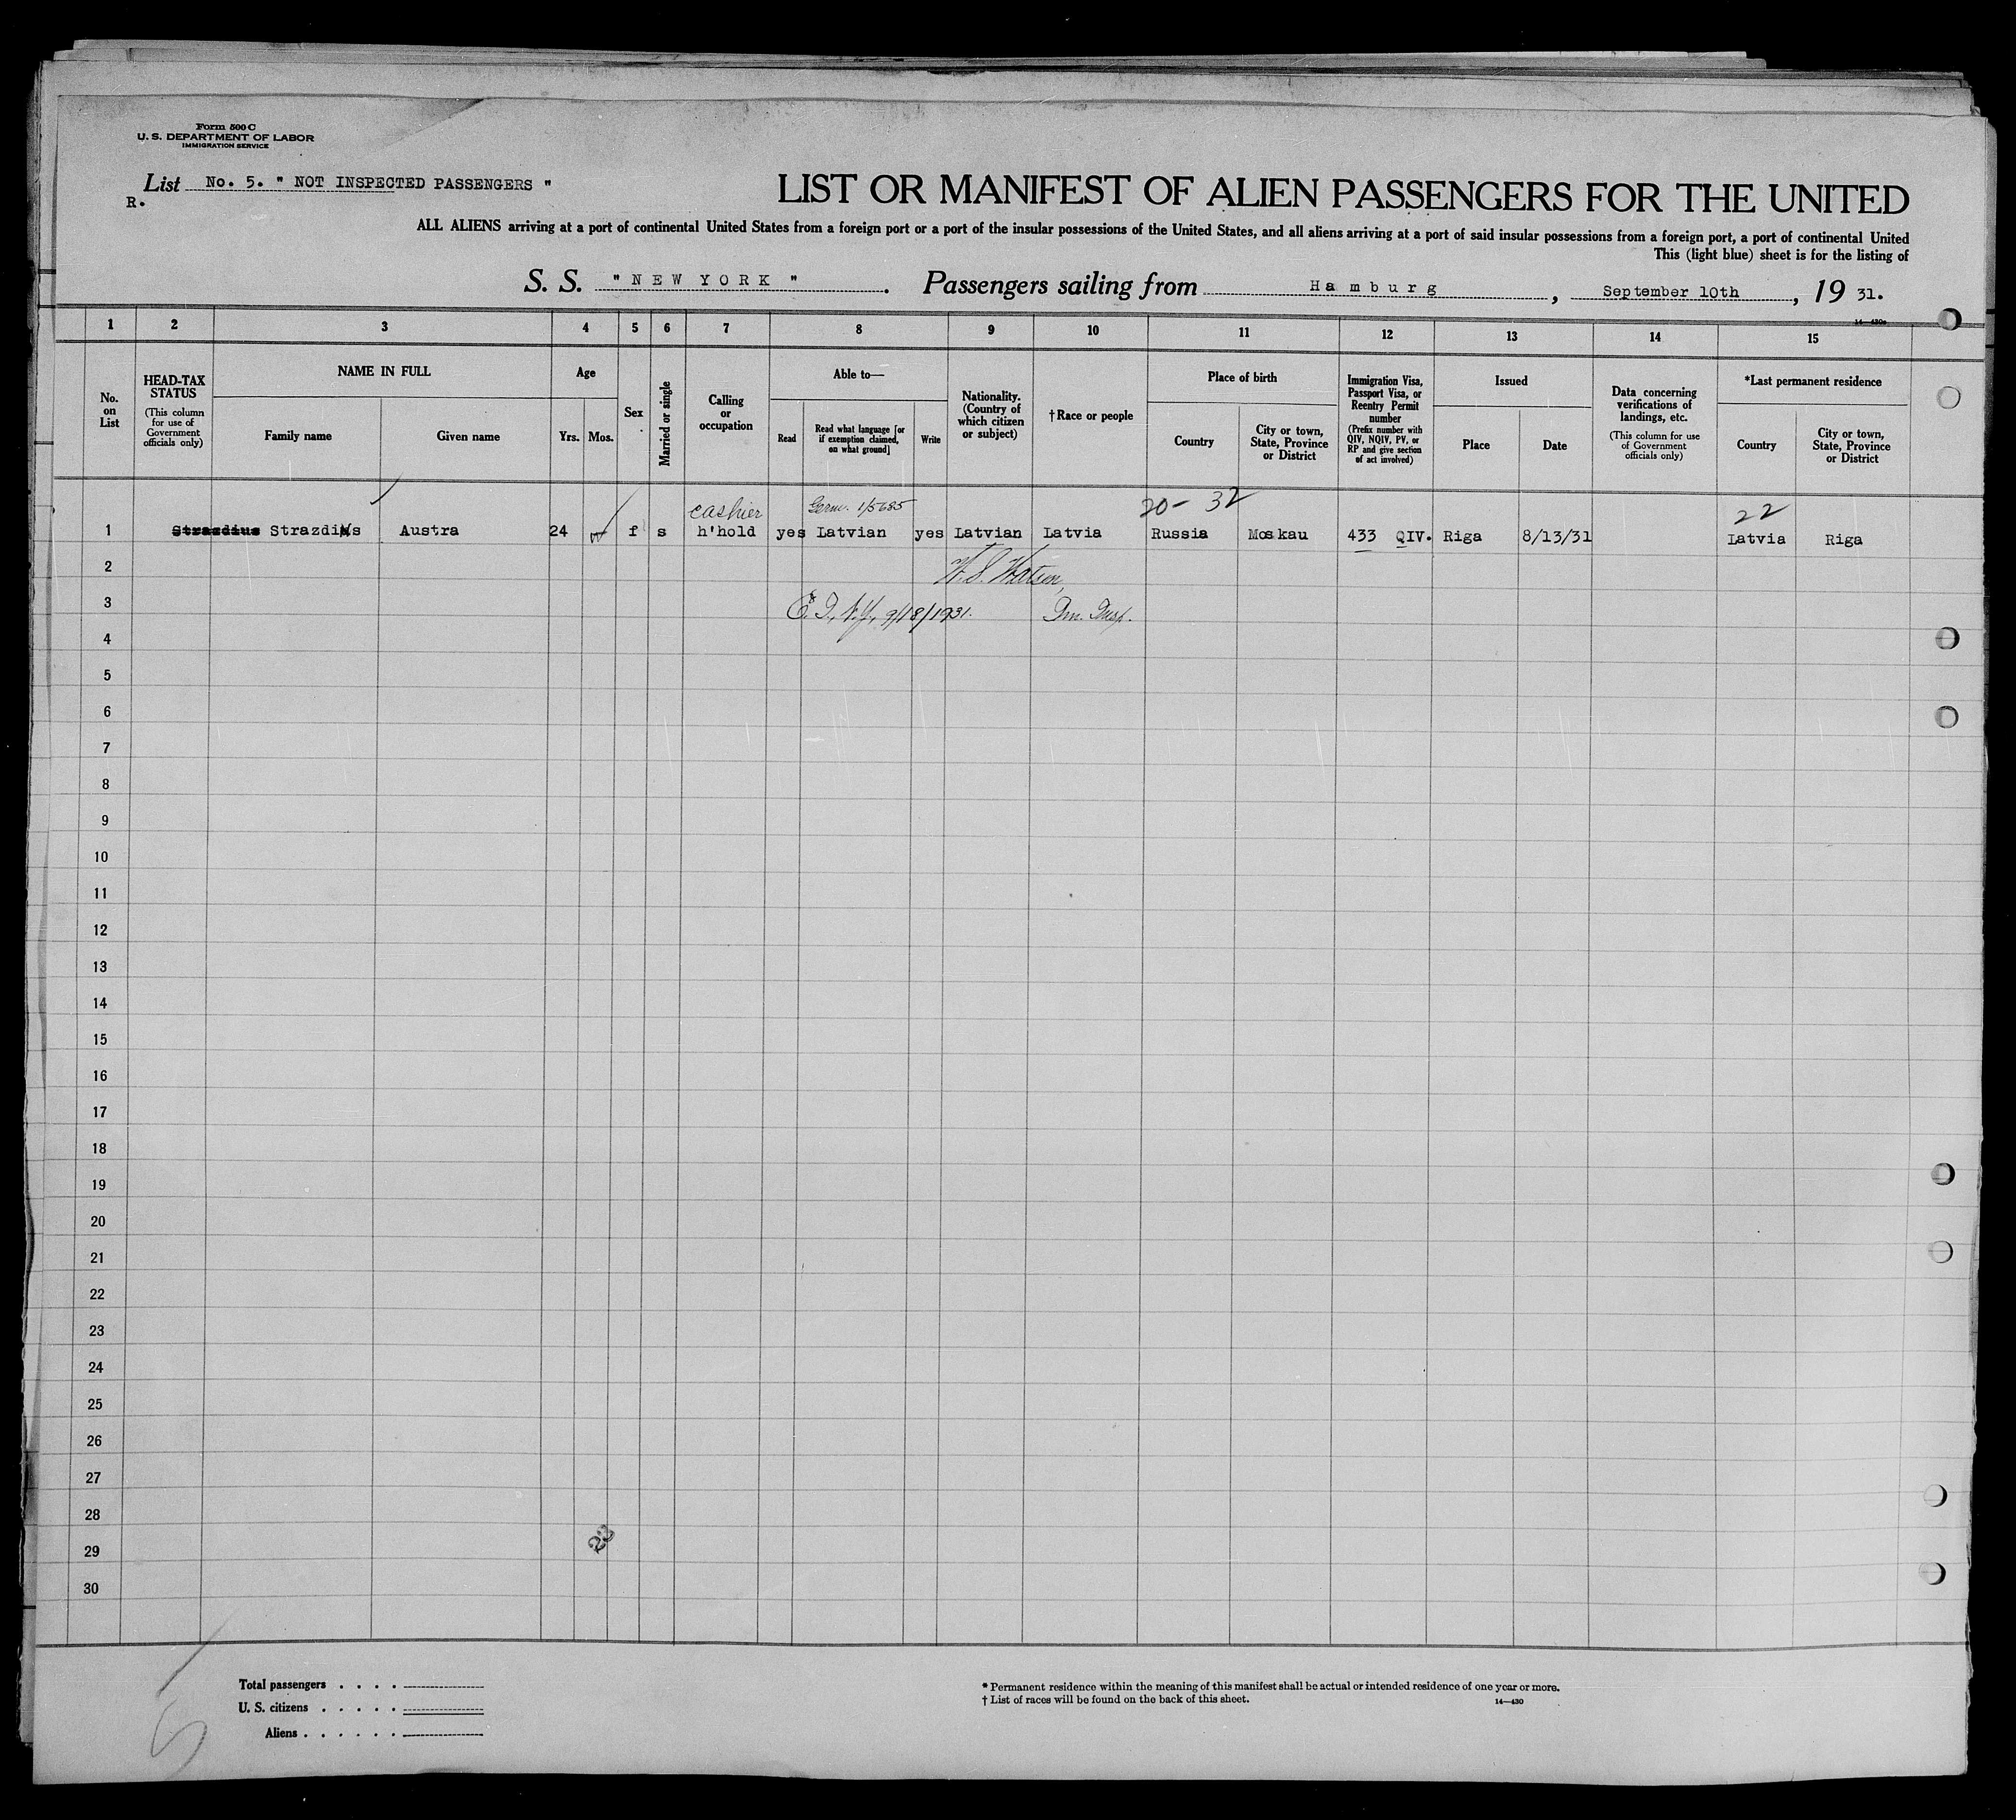 Form 500 C
U. S. DEPARTMENT OF LABOR
IMMIGRATION SERVICE
List No. 5. " NOT INSPECTED PASSENGERS "
R.
LIST OR MANIFEST OF ALIEN PASSENGERS FOR THE UNITED
ALL ALIENS arriving at a port of continental United States from a foreign port or a port of the insular possessions of the United States, and all aliens arriving at a port of said insular possessions from a foreign port, a port of continental United
This (light blue) sheet is for the listing of
S. S. " NEW YORK " . Passengers sailing from Hamburg , September 10th , 19 31.
1 2 3 4 5 6 7 8 9 10 11 12 13 14 15
No. on List
HEAD-TAX STATUS
(This column for use of Government officials only)
NAME IN FULL
Family name
Given name
Age
Yrs.
Mos.
Sex
Married or single
Calling or occupation
Able to—
Read
Read what language [or if exemption claimed, on what ground]
Write
Nationality. (Country of which citizen or subject)
†Race or people
Place of birth
Country
City or town, State, Province or District
Immigration Visa, Passport Visa, or Reentry Permit number
(Prefix number with QIV, NQIV, PV, or RP and give section of act involved)
Issued
Place
Date
Data concerning verifications of landings, etc.
(This column for use of Government officials only)
*Last permanent residence
Country
City or town, State, Province or District
cashier Germ. 1/5685 20- 32 22
1 Strazdius Strazdins Austra 24 f s h'hold yes Latvian yes Latvian Latvia Russia Moskau 433 QIV. Riga 8/13/31 Latvia Riga
2 W. S. Watson,
3 E. I., N.Y., 9/18/1931. Im. Insp.
4
5
6
7
8
9
10
11
12
13
14
15
16
17
18
19
20
21
22
23
24
25
26
27
28
29
30
Total passengers . . . .
U. S. citizens . . . . .
Aliens . . . . . .
* Permanent residence within the meaning of this manifest shall be actual or intended residence of one year or more.
† List of races will be found on the back of this sheet. 14—430